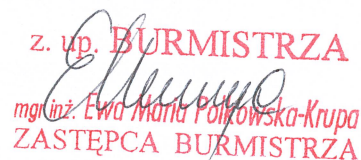 z. up. BURMISTRZA
mgr inż. Ewa Maria Piotrowska-Krupa
ZASTĘPCA BURMISTRZA